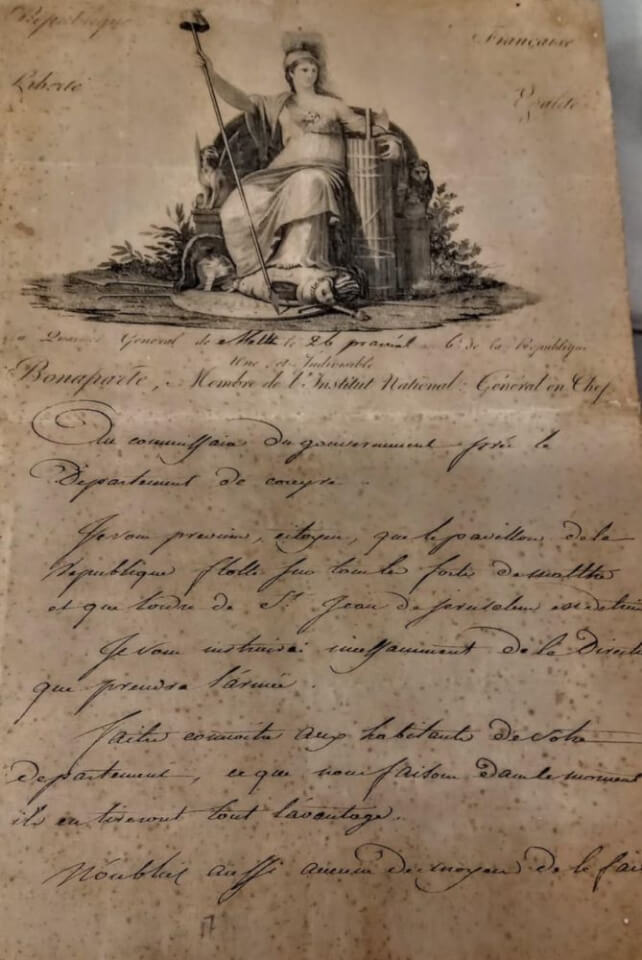 République Française
Liberté Egalité
au Quartier Général de Malte le 26 prairial 6e de la République
Une et Indivisible
Bonaparte, Membre de l'Institut National, Général en Chef
Au commissaire du gouvernement près le
Département de corcyre
Je vous préviens, citoyen, que le pavillon de la
République flotte sur tous les forts de malthe
et que l'ordre de St Jean de Jerusalem est détrui
Je vous instruirai incessamment de la Directi
que prendra l'armée.
Faites connoitre aux habitants de votre
département, ce que nous faisons dans le moment
ils en tireront tout l'avantage.
N'oubliez aussi aucun de moyen de le fai
17